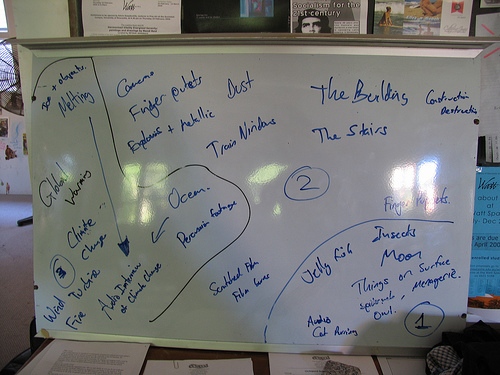 Socialism for the
21st century
Melting
Cinema
Finger puppets
Explosions + metallic
Dust
Train Windows
The Building
Construction
Destruction
The Stairs
Global
Warming
Climate
Change
Torture
Wind
Fire
3
Audio Interviews
Ocean.
Percussion footage
2
Scratched Film
Film
Finger Puppets.
Insects
Jelly Fish
Moon
Things on Surface
Menagerie.
squirrels
Owl.
Audio
Cat Purring
1